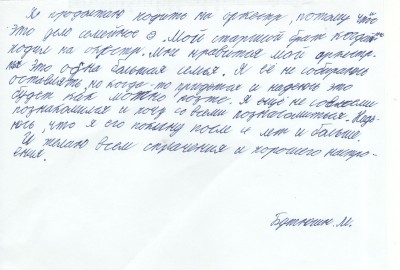 Я продолжаю ходить на оркестр, потому что
это дело семейное☺ Мой старший брат когда-то
ходил на оркестр. Мне нравится мой оркестр-
это одна большая семья. Я её не собираюсь
оставлять, но когда-то придётся и надеюсь это
будет как можно позже. Я ещё не со всеми
познакомился и хочу со всеми познакомиться. Наде-
юсь, что я его покину после 4 лет и больше.
И желаю всем стремления и хорошего настро-
ения.
М.